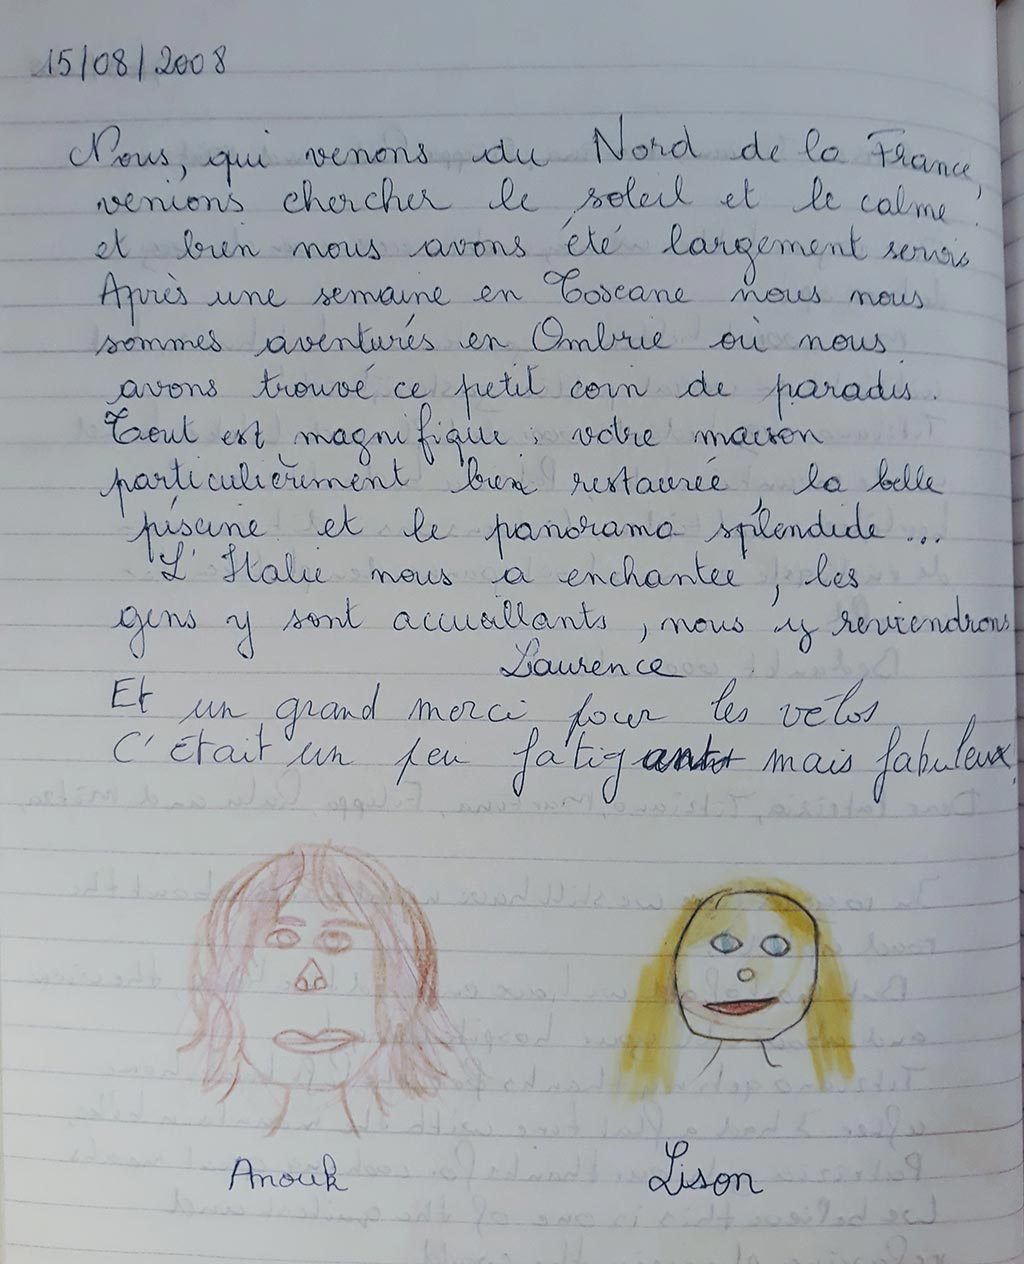 15/08/2008
Nous, qui venons du Nord de la France,
venions chercher le soleil et le calme.
et bien nous avons été largement servis
Après une semaine en Toscane nous nous
sommes aventurés en Ombrie où nous
avons trouvé ce petit coin de paradis.
Tout est magnifique : votre maison
particulièrement bien restaurée, la belle
piscine et le panorama splendide ...
L'Italie nous a enchantée, les
gens y sont accueillants, nous y reviendrons
Laurence
Et un grand merci pour les vélos
C'était un peu fatigant mais fabuleux.
Anouk
Lison